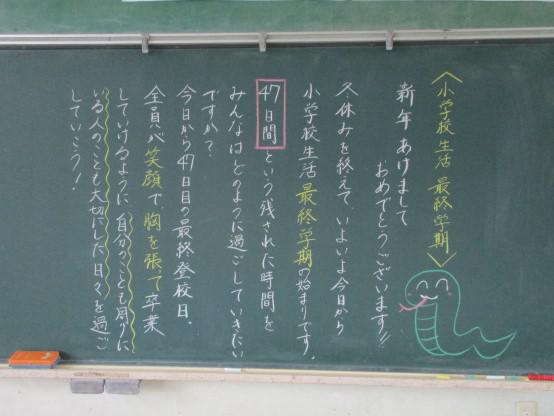 〈小学校生活 最終学期〉
新年 あけまして
おめでとうございます!!
冬休みを終えて いよいよ今日から
小学校生活 最終学期の始まりです。
47日間という残された時間を
みんなはどのように過ごしていきたい
ですか?
今日から47日目の最終登校日。
全員が笑顔で胸を張って卒業
していけるように 自分のことも周りに
いる人のことも大切にした日々を過ご
していこう!